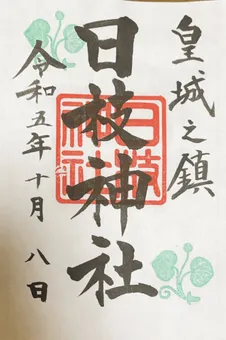 皇城之鎮
日枝神社
日枝神社
令和五年十月八日